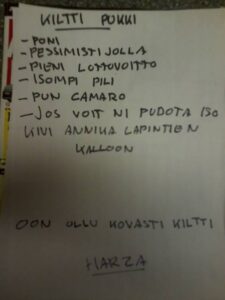 KILTTI PUKKI
- PONI
- PESSIMISTIJOLLA
- PIENI LOTTOVOITTO
- ISOMPI PILI
- PUN CAMARO
- JOS VOIT NI PUDOTA ISO
KIVI ANNIKA LAPINTIEN
KALLOON
OON OLLU KOVASTI KILTTI
HARZA